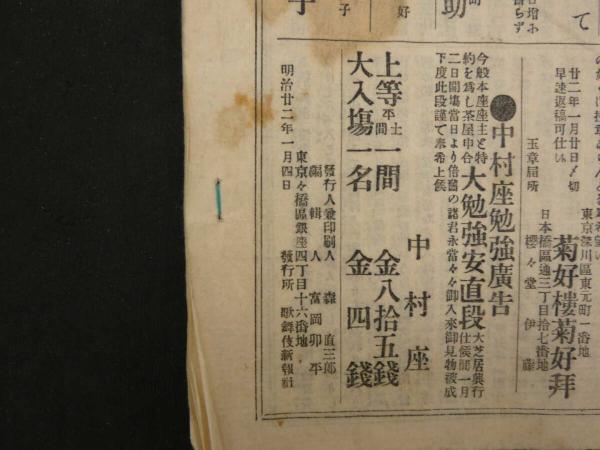 廿二年一月廿日〆切
早速返稿可仕候
東京深川區東元町一番地
菊好樓菊好拜
玉章屆所
日本橋區通三丁目拾七番地
櫻々堂 伊藤
●中村座勉強廣告
今般本座座主と特
約を爲し茶屋申合
大勉強安直段
大芝居興行
仕候間一月
二日開塲當日より倍舊の諸君永當々々御入來御見物被成
下度此段謹て奉希上候
中村座
上等 平土間 一間 金八拾五錢
大入塲一名 金四錢
發行人兼印刷人 森直三郎
編輯人 富岡卯平
東京々橋區銀座四丁目十六番地
發行所 歌舞伎新報社
明治廿二年一月四日